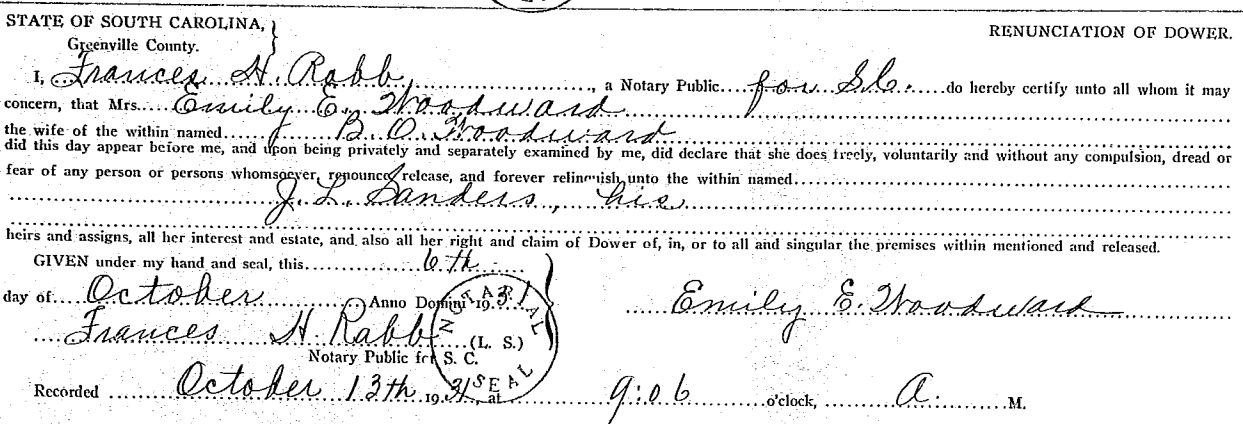 STATE OF SOUTH CAROLINA,
Greenville County.
RENUNCIATION OF DOWER.
I, Frances H. Rabb, a Notary Public for S.C. do hereby certify unto all whom it may
concern, that Mrs. Emily E. Woodward
the wife of the within named B. O. Woodward
did this day appear before me, and upon being privately and separately examined by me, did declare that she does freely, voluntarily and without any compulsion, dread or
fear of any person or persons whomsoever, renounce, release, and forever relinquish unto the within named
J. L. Sanders, his
heirs and assigns, all her interest and estate, and also all her right and claim of Dower of, in, or to all and singular the premises within mentioned and released.
GIVEN under my hand and seal, this 6th
day of October Anno Domini 1931
Emily E. Woodward
Frances H. Rabb (L. S.)
Notary Public for S. C.
NOTARIAL SEAL
Recorded October 13th 1931, at 9:06 o'clock, A. M.